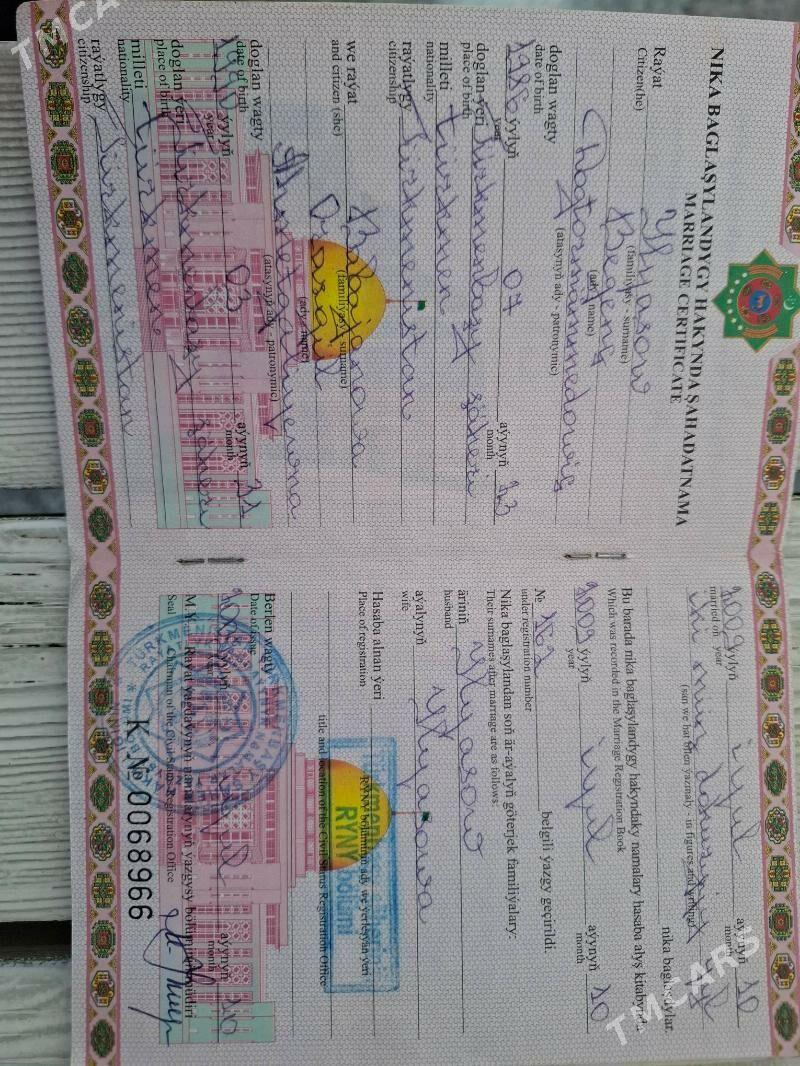 NIKA BAGLAŞYLANDYGY HAKYNDA ŞAHADATNAMA
MARRIAGE CERTIFICATE
Raýat Ylyasow
Citizen(he) (familiýasy - surname)
Begenç
(ady - name)
(atasynyň ady - patronymic)
doglan wagty
date of birth
1986 ýylyň 07 aýynyň 13
year month
doglan ýeri Türkmenbaşy şäheri
place of birth
milleti türkmen
nationality
raýatlygy Türkmenistan
citizenship
we raýat Babajanowa
and citizen (she) (familiýasy - surname)
Oguzgül
(ady - name)
(atasynyň ady - patronymic)
doglan wagty
date of birth
ýylyň 03 aýynyň 31
year month
doglan ýeri Türkmenbaşy şäheri
place of birth
milleti türkmen
nationality
raýatlygy Türkmenistan
citizenship
2009 ýylyň iýul aýynyň 10
married on year month
iki müň dokuzynjy ýyl
(san we hat bilen ýazmaly - in figures and writing)
nika baglaşdylar.
Bu barada nika baglaşylandygy hakyndaky namalary hasaba alyş kitabynda
Which was recorded in the Marriage Registration Book
2009 ýylyň iýul aýynyň 10
year month
№ belgili ýazgy geçirildi
under registration number
Nika baglaşylandan soň är-aýalyň göterjek familiýalary:
Their surnames after marriage are as follows:
äriniň Ylyasow
husband
aýalynyň Ylyasowa
wife
Hasaba alnan ýeri
Place of registration
RÝNÝ bölümi
RÝNÝ bölüminiň ady we ýerleşýän ýeri
title and location of the Civil Status Registration Office
Berlen wagty 2009 ýylyň iýul aýynyň 10
Date of issue month
M.Ý. Raýat ýagdaýynyň namalarynyň ýazgysy bölüminiň müdiri
Seal Chairman of the Civil Status Registration Office
K № 0068966
TMCARS
TMCARS